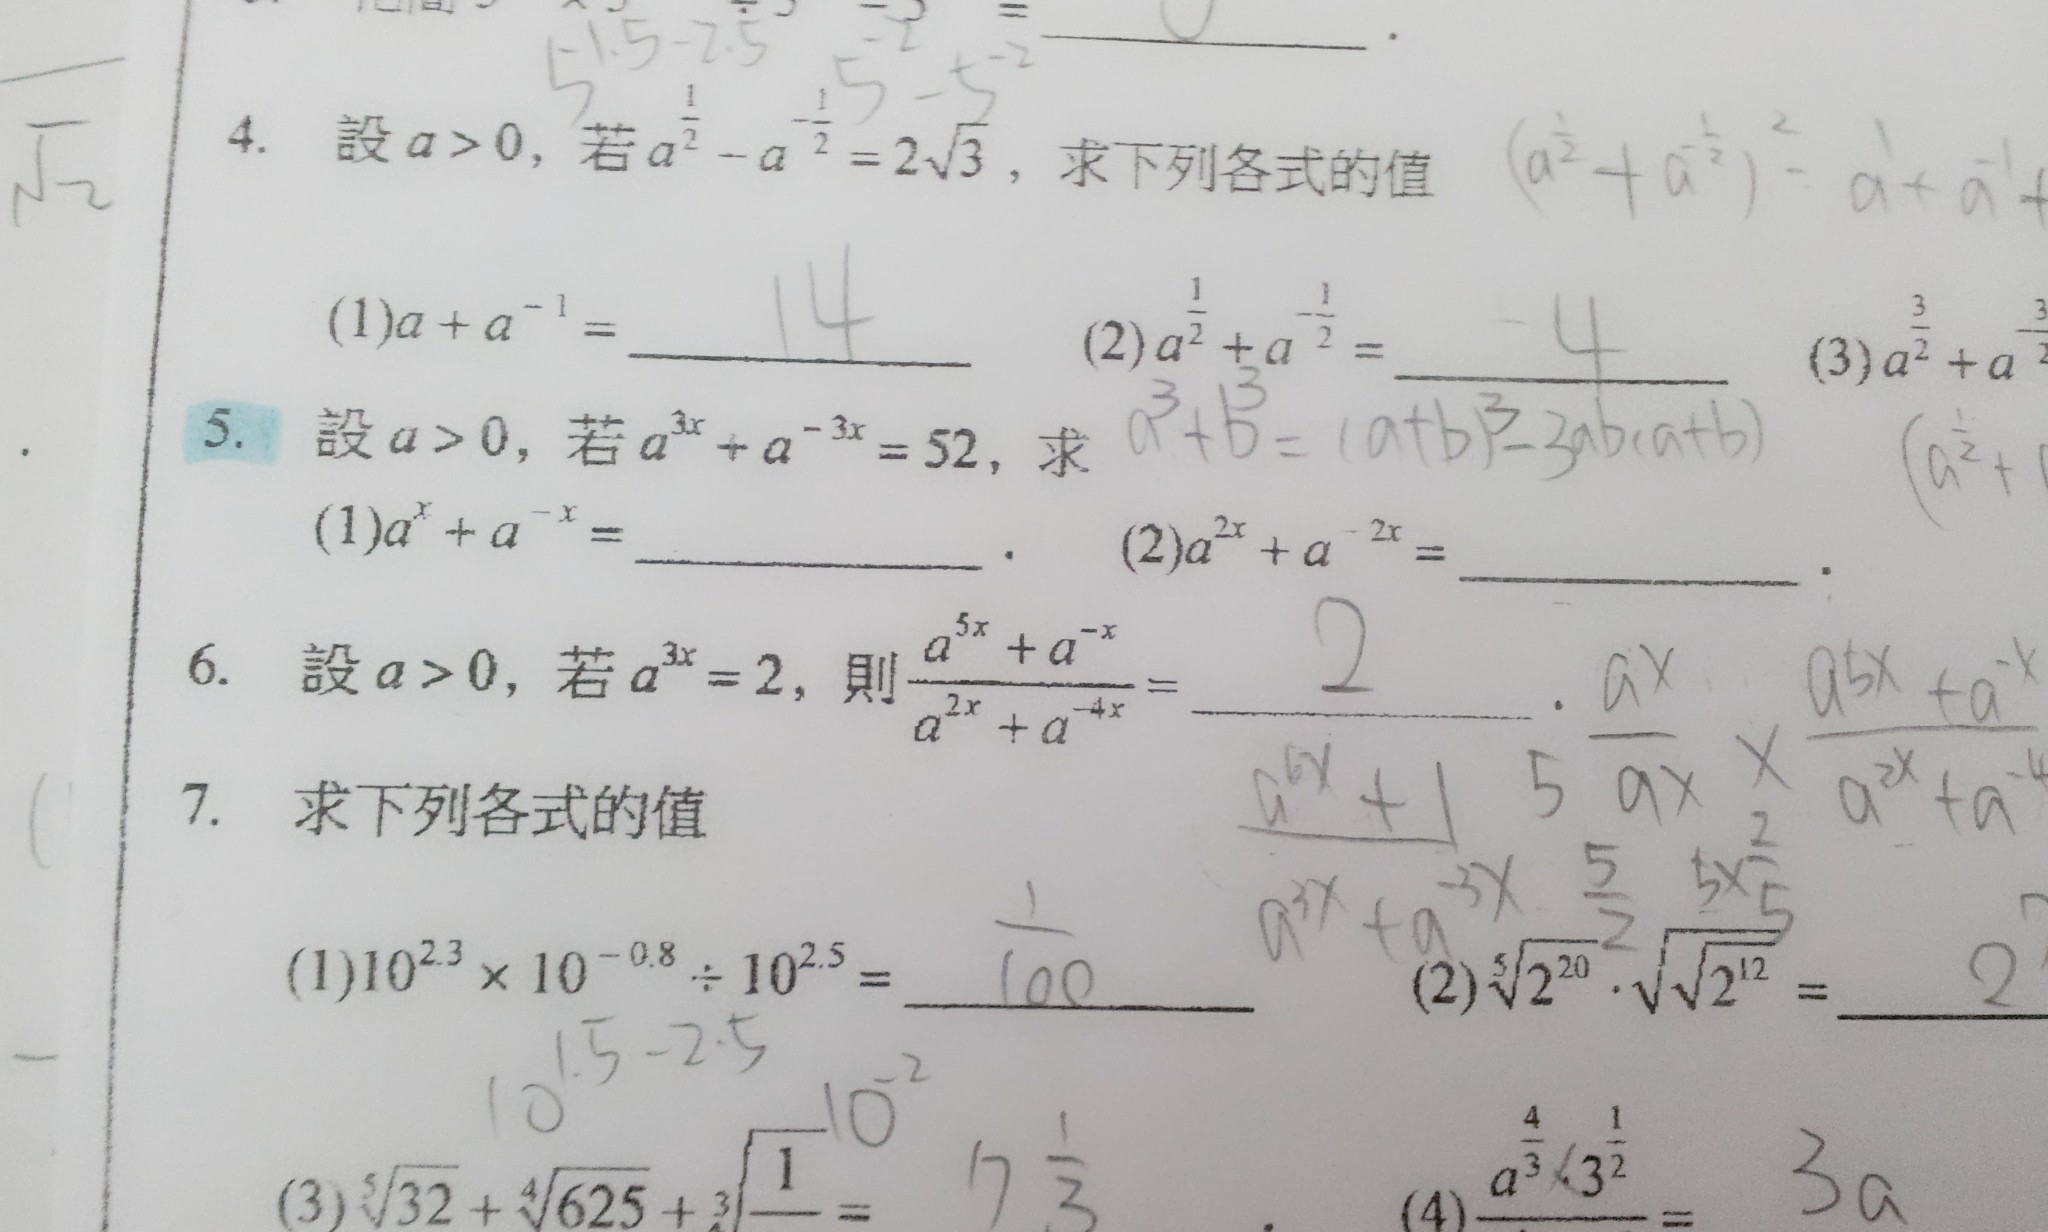 = 0 .
5^1.5-2.5 5^-2
5-5^-2
√2
4. 設 a > 0，若 a^(1/2) - a^(-1/2) = 2√3，求下列各式的值 (a^(1/2) + a^(-1/2))^2 = a^1 + a^-1 +
(1) a + a^-1 = 14 (2) a^(1/2) + a^(-1/2) = -4 (3) a^(3/2) + a^(-3/2)
5. 設 a > 0，若 a^3x + a^-3x = 52，求 a^3 + b^3 = (a+b)^3 - 3ab(a+b)
(a^(1/2) +
(1) a^x + a^-x = ______ . (2) a^2x + a^-2x = ______ .
6. 設 a > 0，若 a^3x = 2，則 (a^5x + a^-x)/(a^2x + a^-4x) = 2 . a^x/a^x × (a^5x + a^-x)/(a^2x + a^-4
(a^6x + 1)/(a^3x + a^-3x) 5
7. 求下列各式的值
5/2 5×2/5
(1) 10^2.3 × 10^-0.8 ÷ 10^2.5 = 1/100 (2) ⁵√2^20 · √√2^12 = 2
10^1.5-2.5 10^-2
(3) ⁵√32 + ⁴√625 + ³√1 = 7 1/3 . (4) a^(4/3) 3^(1/2) = 3a